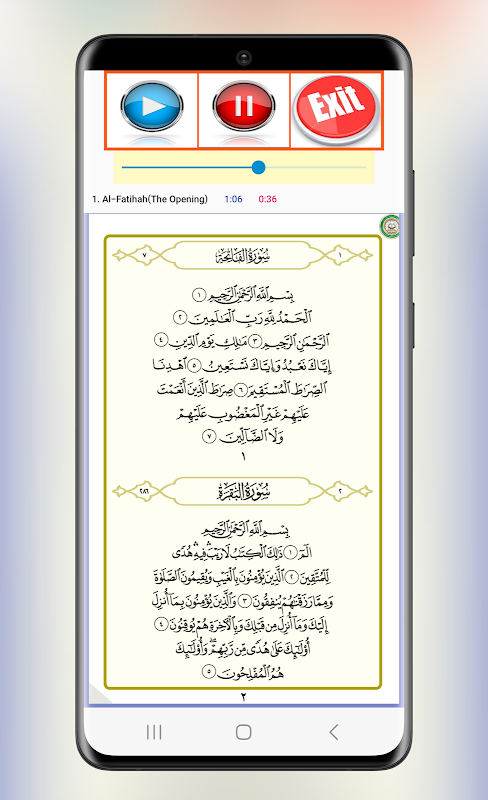 Exit
1. Al-Fatihah(The Opening) 1:06 0:36
١ سُورَةُ الفَاتِحَةِ ٧
بِسْمِ ٱللَّهِ ٱلرَّحْمَٰنِ ٱلرَّحِيمِ ١
ٱلْحَمْدُ لِلَّهِ رَبِّ ٱلْعَٰلَمِينَ ٢
ٱلرَّحْمَٰنِ ٱلرَّحِيمِ ٣ مَٰلِكِ يَوْمِ ٱلدِّينِ ٤
إِيَّاكَ نَعْبُدُ وَإِيَّاكَ نَسْتَعِينُ ٥ ٱهْدِنَا
ٱلصِّرَٰطَ ٱلْمُسْتَقِيمَ ٦ صِرَٰطَ ٱلَّذِينَ أَنْعَمْتَ
عَلَيْهِمْ غَيْرِ ٱلْمَغْضُوبِ عَلَيْهِمْ
وَلَا ٱلضَّآلِّينَ ٧
١
٢ سُورَةُ البَقَرَةِ ٢٨٦
بِسْمِ ٱللَّهِ ٱلرَّحْمَٰنِ ٱلرَّحِيمِ
الٓمٓ ١ ذَٰلِكَ ٱلْكِتَٰبُ لَا رَيْبَ ۛ فِيهِ ۛ هُدًى
لِّلْمُتَّقِينَ ٢ ٱلَّذِينَ يُؤْمِنُونَ بِٱلْغَيْبِ وَيُقِيمُونَ ٱلصَّلَوٰةَ
وَمِمَّا رَزَقْنَٰهُمْ يُنفِقُونَ ٣ وَٱلَّذِينَ يُؤْمِنُونَ بِمَآ أُنزِلَ
إِلَيْكَ وَمَآ أُنزِلَ مِن قَبْلِكَ وَبِٱلْءَاخِرَةِ هُمْ يُوقِنُونَ ٤
أُو۟لَٰٓئِكَ عَلَىٰ هُدًى مِّن رَّبِّهِمْ ۖ وَأُو۟لَٰٓئِكَ
هُمُ ٱلْمُفْلِحُونَ ٥
٢